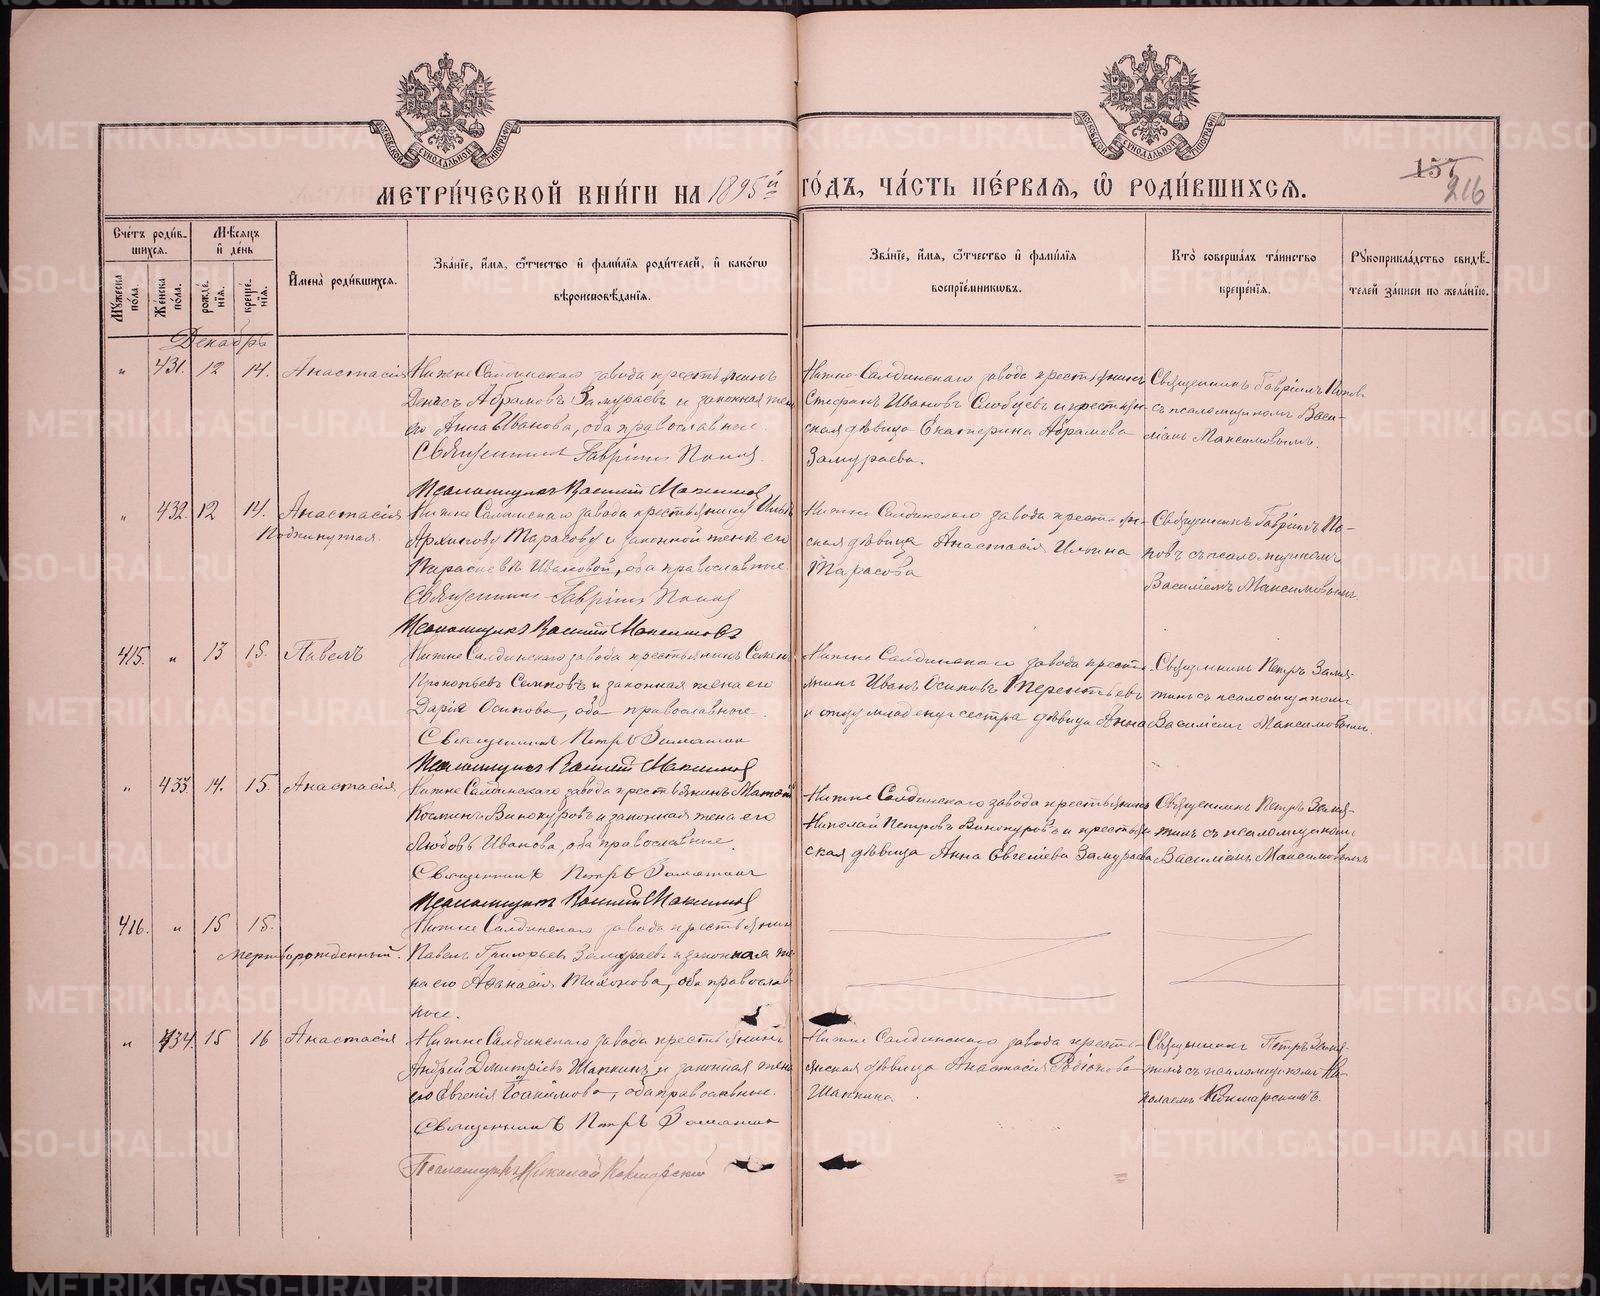 МЕТРИ́ЧЕСКОЙ КНИ́ГИ НА 1895й ГО́ДЪ, ЧА́СТЬ ПЕ́РВАЯ, Ѡ РОДИ́ВШИХСЯ.
157
216
Сче́тъ роди́вшихся.
Му́жеска по́ла.
Же́нска по́ла.
Мѣ́сяцъ и де́нь
рожде́нїя.
креще́нїя.
И҆мена̀ роди́вшихся.
Зва́нїе, и҆́мя, ѻ҆́тчество и҆ фами́лїя роди́телей, и҆ како́гѡ
вѣроисповѣ́данїя.
Зва́нїе, и҆́мя, ѻ҆́тчество и҆ фами́лїя
воспрїе́мникѡвъ.
Кто̀ соверша́лъ та́инство
креще́нїя.
Рꙋкоприкла́дство свидѣ́телей за́писи по жела́нїю.
Декабрь
" 431. 12 14. Анастасія
Нижне Салдинскаго завода крестьянинъ
Денисъ Абрамовъ Замураевъ и законная жена
его Анна Иванова, оба православные.
Священникъ Гавріилъ Поповъ
Псаломщикъ Василій Максимовъ
Нижне-Салдинскаго завода крестьянинъ
Стефанъ Ивановъ Слобцевъ и крестьян-
ская дѣвица Екатерина Абрамова
Замураева.
Священникъ Гавріилъ Поповъ
съ псаломщикомъ Васи-
ліемъ Максимовымъ.
" 432. 12 14. Анастасія
Подкинутая
Нижне Салдинскаго завода крестьянину Илью
Архипову Тарасову и законной женѣ его
Парасκевѣ Ивановой, оба православные.
Священникъ Гавріилъ Поповъ
Псаломщикъ Василій Максимовъ
Нижне Салдинскаго завода крестьян-
ская дѣвица Анастасія Ильина
Тарасова
Священникъ Гавріилъ По-
повъ съ псаломщикомъ
Василіемъ Максимовымъ.
415. " 13 15. Павелъ
Нижне Салдинскаго завода крестьянинъ Семенъ
Прокопьевъ Семковъ и законная жена его
Дарія Осипова, оба православные.
Священникъ Петръ Замятинъ
Псаломщикъ Василій Максимовъ
Нижне Салдинскаго завода кресть-
янинъ Иванъ Осиповъ Терентьевъ
и отцу младенца сестра дѣвица Анна
Священникъ Петръ Замя-
тинъ съ псаломщикомъ
Василіемъ Максимовымъ.
" 433 14. 15. Анастасія
Нижне Салдинскаго завода крестьянинъ Матвѣй
Космин Винокуровъ и законная жена его
Любовь Иванова, оба православные.
Священникъ Петръ Замятинъ
Псаломщикъ Василій Максимовъ
Нижне Салдинскаго завода крестьянинъ
Николай Петровъ Винокуровъ и крестьян-
ская дѣвица Анна Евгеніева Замураева
Священникъ Петръ Замя-
тинъ съ псаломщикомъ
Василіемъ Максимовымъ
416. " 15 15.
мертворожденный.
Нижне Салдинскаго завода крестьянинъ
Павелъ Григорьевъ Замураевъ и законная же-
на его Афанасія Тихонова, оба православ-
ные.
" 434. 15 16 Анастасія
Нижне Салдинскаго завода крестьянинъ
Андрей Дмитріевъ Шапкинъ и законная жена
его Евгенія Іоакимова, оба православные.
Священникъ Петръ Замятинъ
Псаломщикъ Николай
Нижне Салдинскаго завода кресть-
янская дѣвица Анастасія Родіонова
Шапкина.
Священникъ Петръ Замя-
тинъ съ псаломщикомъ Ни-
колаемъ
METRIKI.GASO-URAL.RU